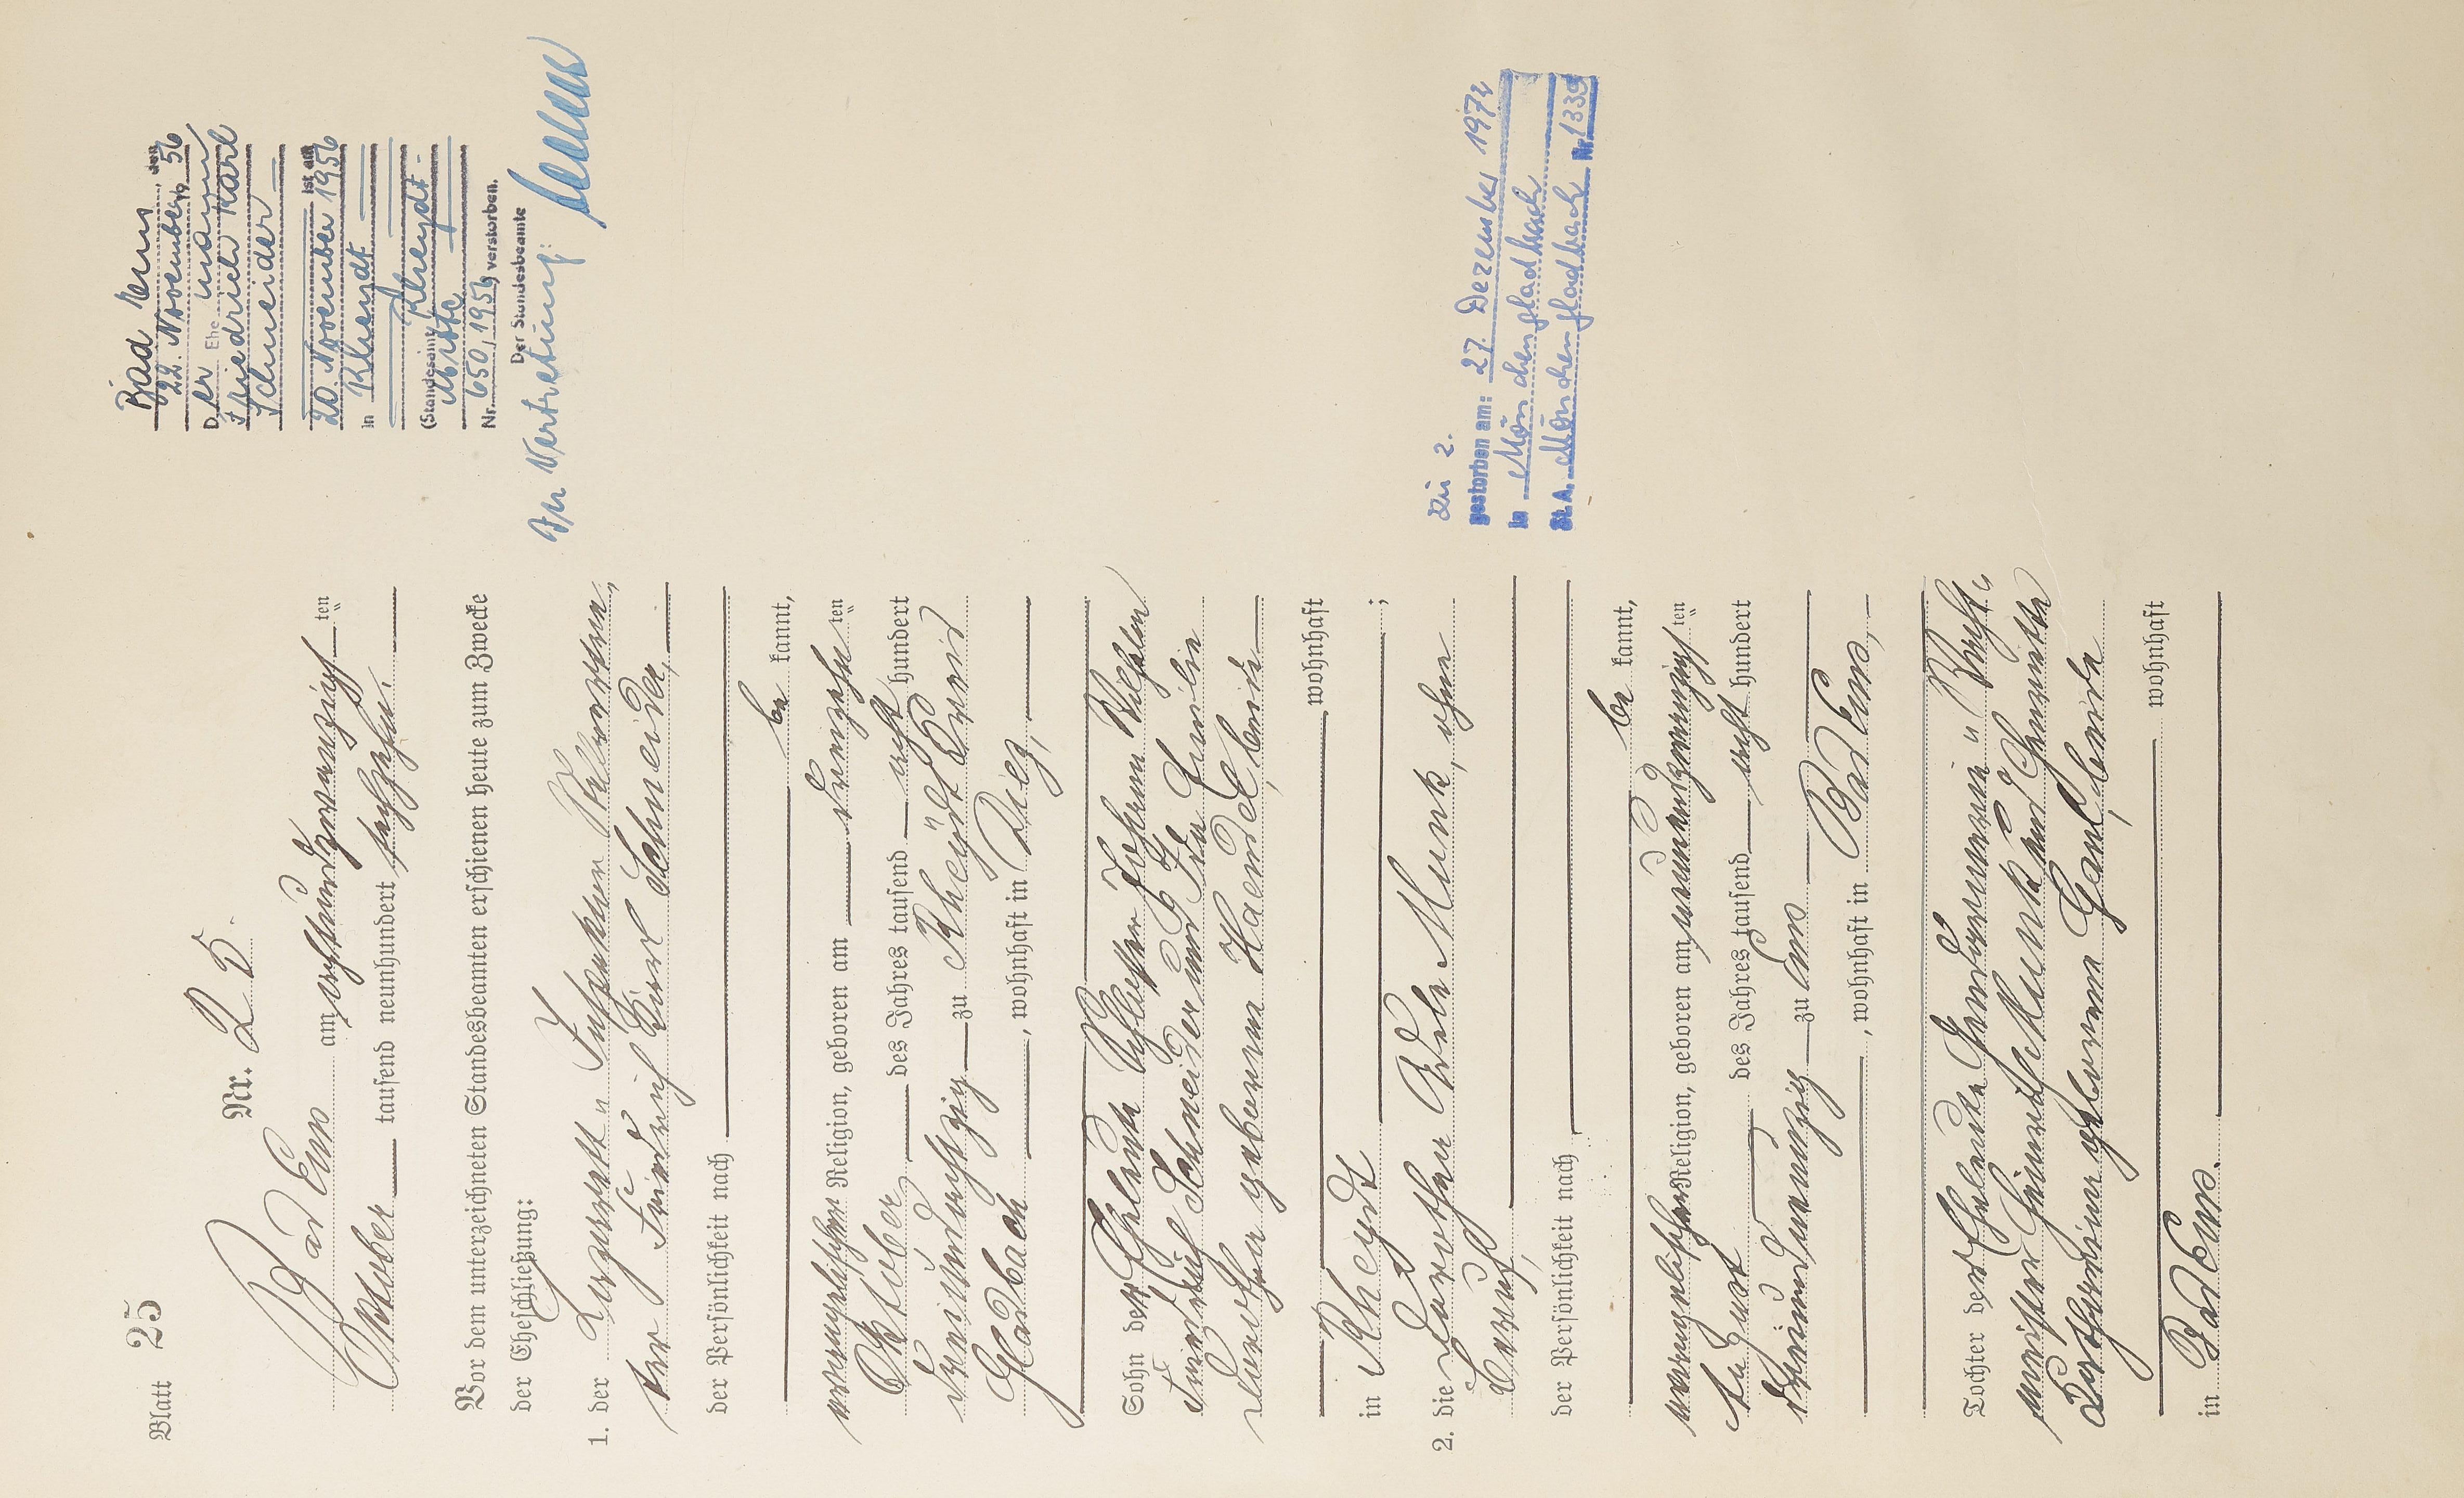 Blatt 25
Nr. 25.
Bad Ems am achtundzwanzigsten
Oktober tausend neunhundert sechzehn.
Vor dem unterzeichneten Standesbeamten erschienen heute zum Zwecke
der Eheschließung:
1. der Lazarett-Inspektor Stellvertre-
ter Friedrich Karl Schneider,
der Persönlichkeit nach
be kannt,
evangelischer Religion, geboren am dreizehnten
Oktober des Jahres tausend acht hundert
dreiundachtzig zu Rheydt Kreis
Gladbach, wohnhaft in Diez,
Sohn der Eheleute Johann Wilhelm
Friedrich Schneider und Ida Emilie
Dorothea geborenen Haendel, beide
wohnhaft
in Rheydt;
2. die Dorothea Adele Munk, ohne
Beruf,
der Persönlichkeit nach
be kannt,
evangelischer Religion, geboren am neunundzwanzigsten
August des Jahres tausend acht hundert
dreiundneunzig zu Ems
, wohnhaft in Bad Ems,
Tochter der Eheleute
meister Heinrich Munk und Henriette
Katharina geborenen beide
wohnhaft
in Bad Ems.
Bad Ems, den
22. November 56
Der Ehemann
Friedrich Karl
Schneider
ist am
20. November 1956
in Rheydt
(Standesamt Rheydt-
Mitte
Nr. 650/1956) verstorben.
Der Standesbeamte
In Vertretung:
Zu 2.
gestorben am: 27. Dezember 1972
in Mönchengladbach
St.A. Mönchengladbach Nr. 1339